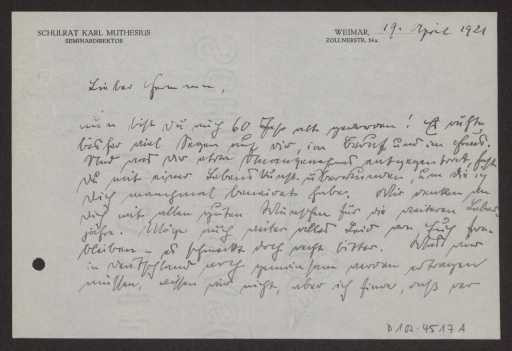 SCHULRAT KARL MUTHESIUS
SEMINARDIREKTOR
WEIMAR, 19. April 1921
ZÖLLNERSTR. 14a.
Lieber Hermann,
nun bist Du auch 60 Jahr alt geworden! Es ruhte
bisher viel Segen auf Dir, im Beruf und im Haus.
Und was Dir etwa Unangenehmes entgegentrat, hast
Du mit einer Lebenskunst überwunden, um die ich
Dich manchmal beneidet habe. Wir denken an
Dich mit allen guten Wünschen für die weiteren Lebens-
jahre. Möge auch weiter alles Leid von Euch fern
bleiben – es schmeckt doch recht bitter. Was wir
in Deutschland noch gemeinsam werden ertragen
müssen, wissen wir nicht, aber ich finde, daß wir
D 102-4517 A